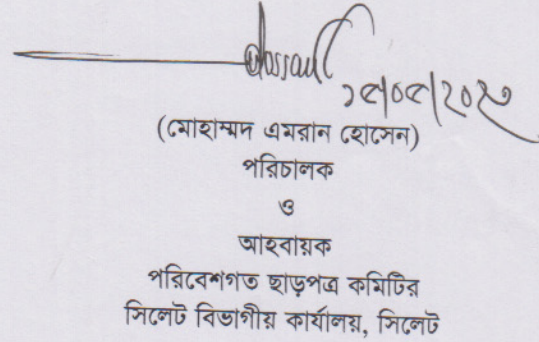 ১৫/০৫/২০২৩
(মোহাম্মদ এমরান হোসেন)
পরিচালক
ও
আহবায়ক
পরিবেশগত ছাড়পত্র কমিটির
সিলেট বিভাগীয় কার্যালয়, সিলেট